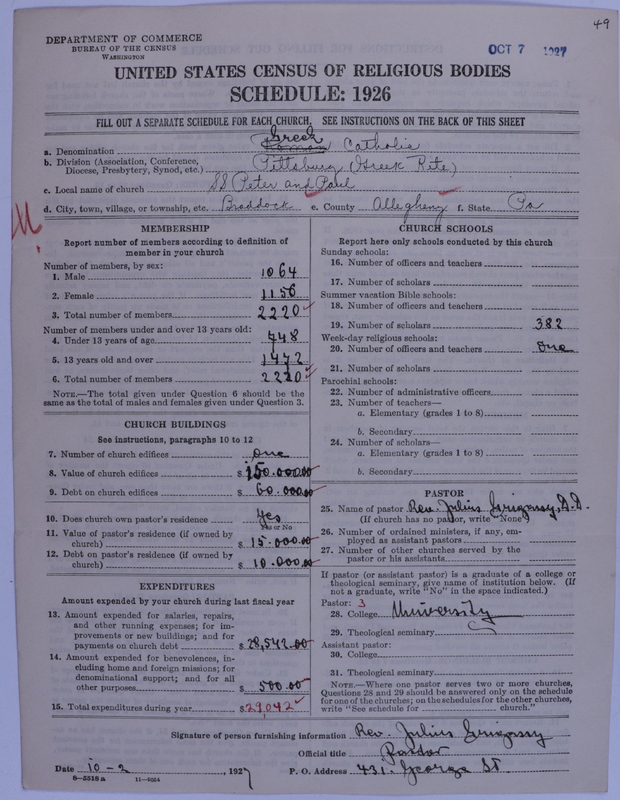 49
DEPARTMENT OF COMMERCE
BUREAU OF THE CENSUS
WASHINGTON
OCT 7 1927
UNITED STATES CENSUS OF RELIGIOUS BODIES
SCHEDULE: 1926
FILL OUT A SEPARATE SCHEDULE FOR EACH CHURCH. SEE INSTRUCTIONS ON THE BACK OF THIS SHEET
Greek
a. Denomination Roman Catholic
b. Division (Association, Conference, Diocese, Presbytery, Synod, etc.) Pittsburg (Greek Rite)
c. Local name of church SS Peter and Paul
d. City, town, village, or township, etc. Braddock e. County Allegheny f. State Pa
M.
MEMBERSHIP
Report number of members according to definition of member in your church
Number of members, by sex:
1. Male 1064
2. Female 1156
3. Total number of members 2220
Number of members under and over 13 years old:
4. Under 13 years of age 748
5. 13 years old and over 1472
6. Total number of members 2220
NOTE.—The total given under Question 6 should be the same as the total of males and females given under Question 3.
CHURCH BUILDINGS
See instructions, paragraphs 10 to 12
7. Number of church edifices one
8. Value of church edifices $150.000.00
9. Debt on church edifices $60.000.00
10. Does church own pastor's residence yes
Yes or No
11. Value of pastor's residence (if owned by church) $15.000.00
12. Debt on pastor's residence (if owned by church) $10.000.00
EXPENDITURES
Amount expended by your church during last fiscal year
13. Amount expended for salaries, repairs, and other running expenses; for improvements or new buildings; and for payments on church debt $28,542.00
14. Amount expended for benevolences, including home and foreign missions; for denominational support; and for all other purposes $500.00
15. Total expenditures during year $29,042
CHURCH SCHOOLS
Report here only schools conducted by this church
Sunday schools:
16. Number of officers and teachers
17. Number of scholars
Summer vacation Bible schools:
18. Number of officers and teachers
19. Number of scholars 382
Week-day religious schools:
20. Number of officers and teachers one
21. Number of scholars
Parochial schools:
22. Number of administrative officers
23. Number of teachers—
a. Elementary (grades 1 to 8)
b. Secondary
24. Number of scholars—
a. Elementary (grades 1 to 8)
b. Secondary
PASTOR
25. Name of pastor Rev. Julius Grigassy, D.D.
(If church has no pastor, write "None")
26. Number of ordained ministers, if any, employed as assistant pastors
27. Number of other churches served by the pastor or his assistants
If pastor (or assistant pastor) is a graduate of a college or theological seminary, give name of institution below. (If not a graduate, write "No" in the space indicated.)
Pastor: 3
28. College University
29. Theological seminary
Assistant pastor:
30. College
31. Theological seminary
NOTE.—Where one pastor serves two or more churches, Questions 28 and 29 should be answered only on the schedule for one of the churches; on the schedules for the other churches, write "See schedule for church."
Signature of person furnishing information Rev. Julius Grigassy
Official title Pastor
Date 10-2, 1927 P. O. Address 431. George St.
8—5518a 11—9004